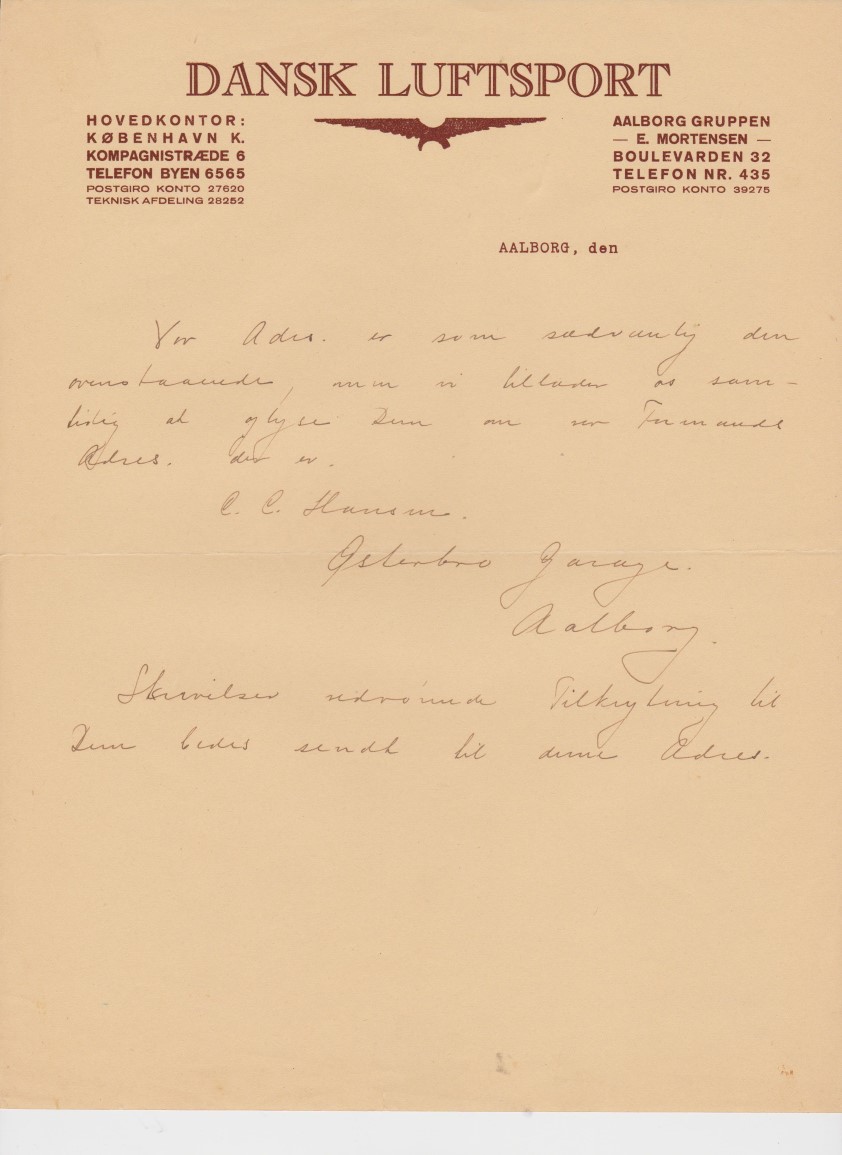 DANSK LUFTSPORT
HOVEDKONTOR:
KØBENHAVN K.
KOMPAGNISTRÆDE 6
TELEFON BYEN 6565
POSTGIRO KONTO 27620
TEKNISK AFDELING 28252
AALBORG GRUPPEN
— E. MORTENSEN —
BOULEVARDEN 32
TELEFON NR. 435
POSTGIRO KONTO 39275
AALBORG, den
Vor Adrs. er som sædvanlig den
ovenstaaende, men vi tillader os sam-
tidig at oplyse Dem om vor Formands
Adres. der er.
C. C. Hansen.
Østerbro Garage.
Aalborg.
Skrivelser vedrørende Tilknytning til
Dem bedes sendt til denne Adres.